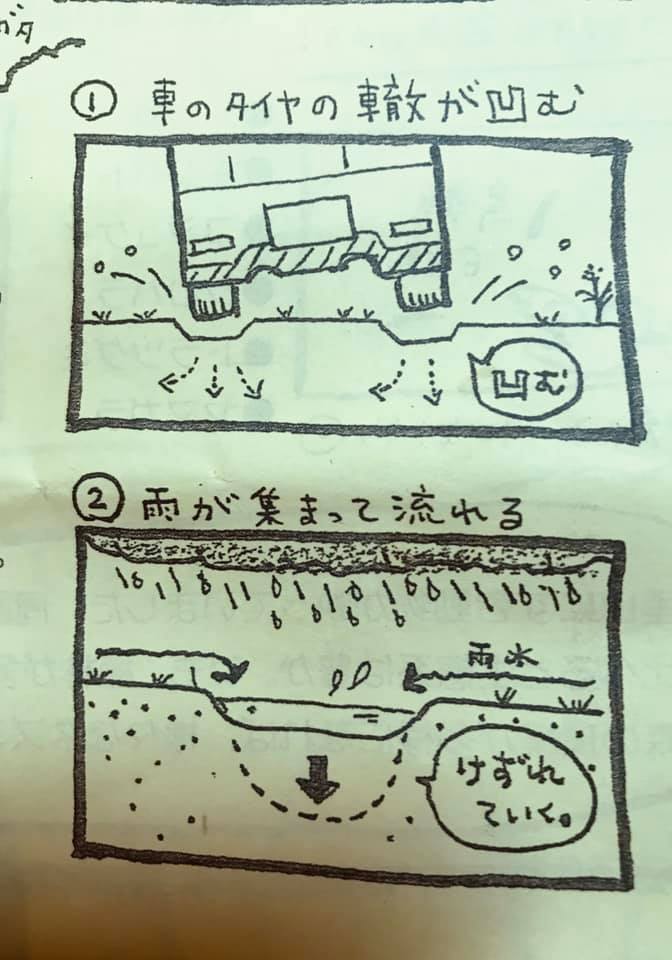 ① 車のタイヤの轍が凹む
凹む
② 雨が集まって流れる
雨水
けずれ
ていく。